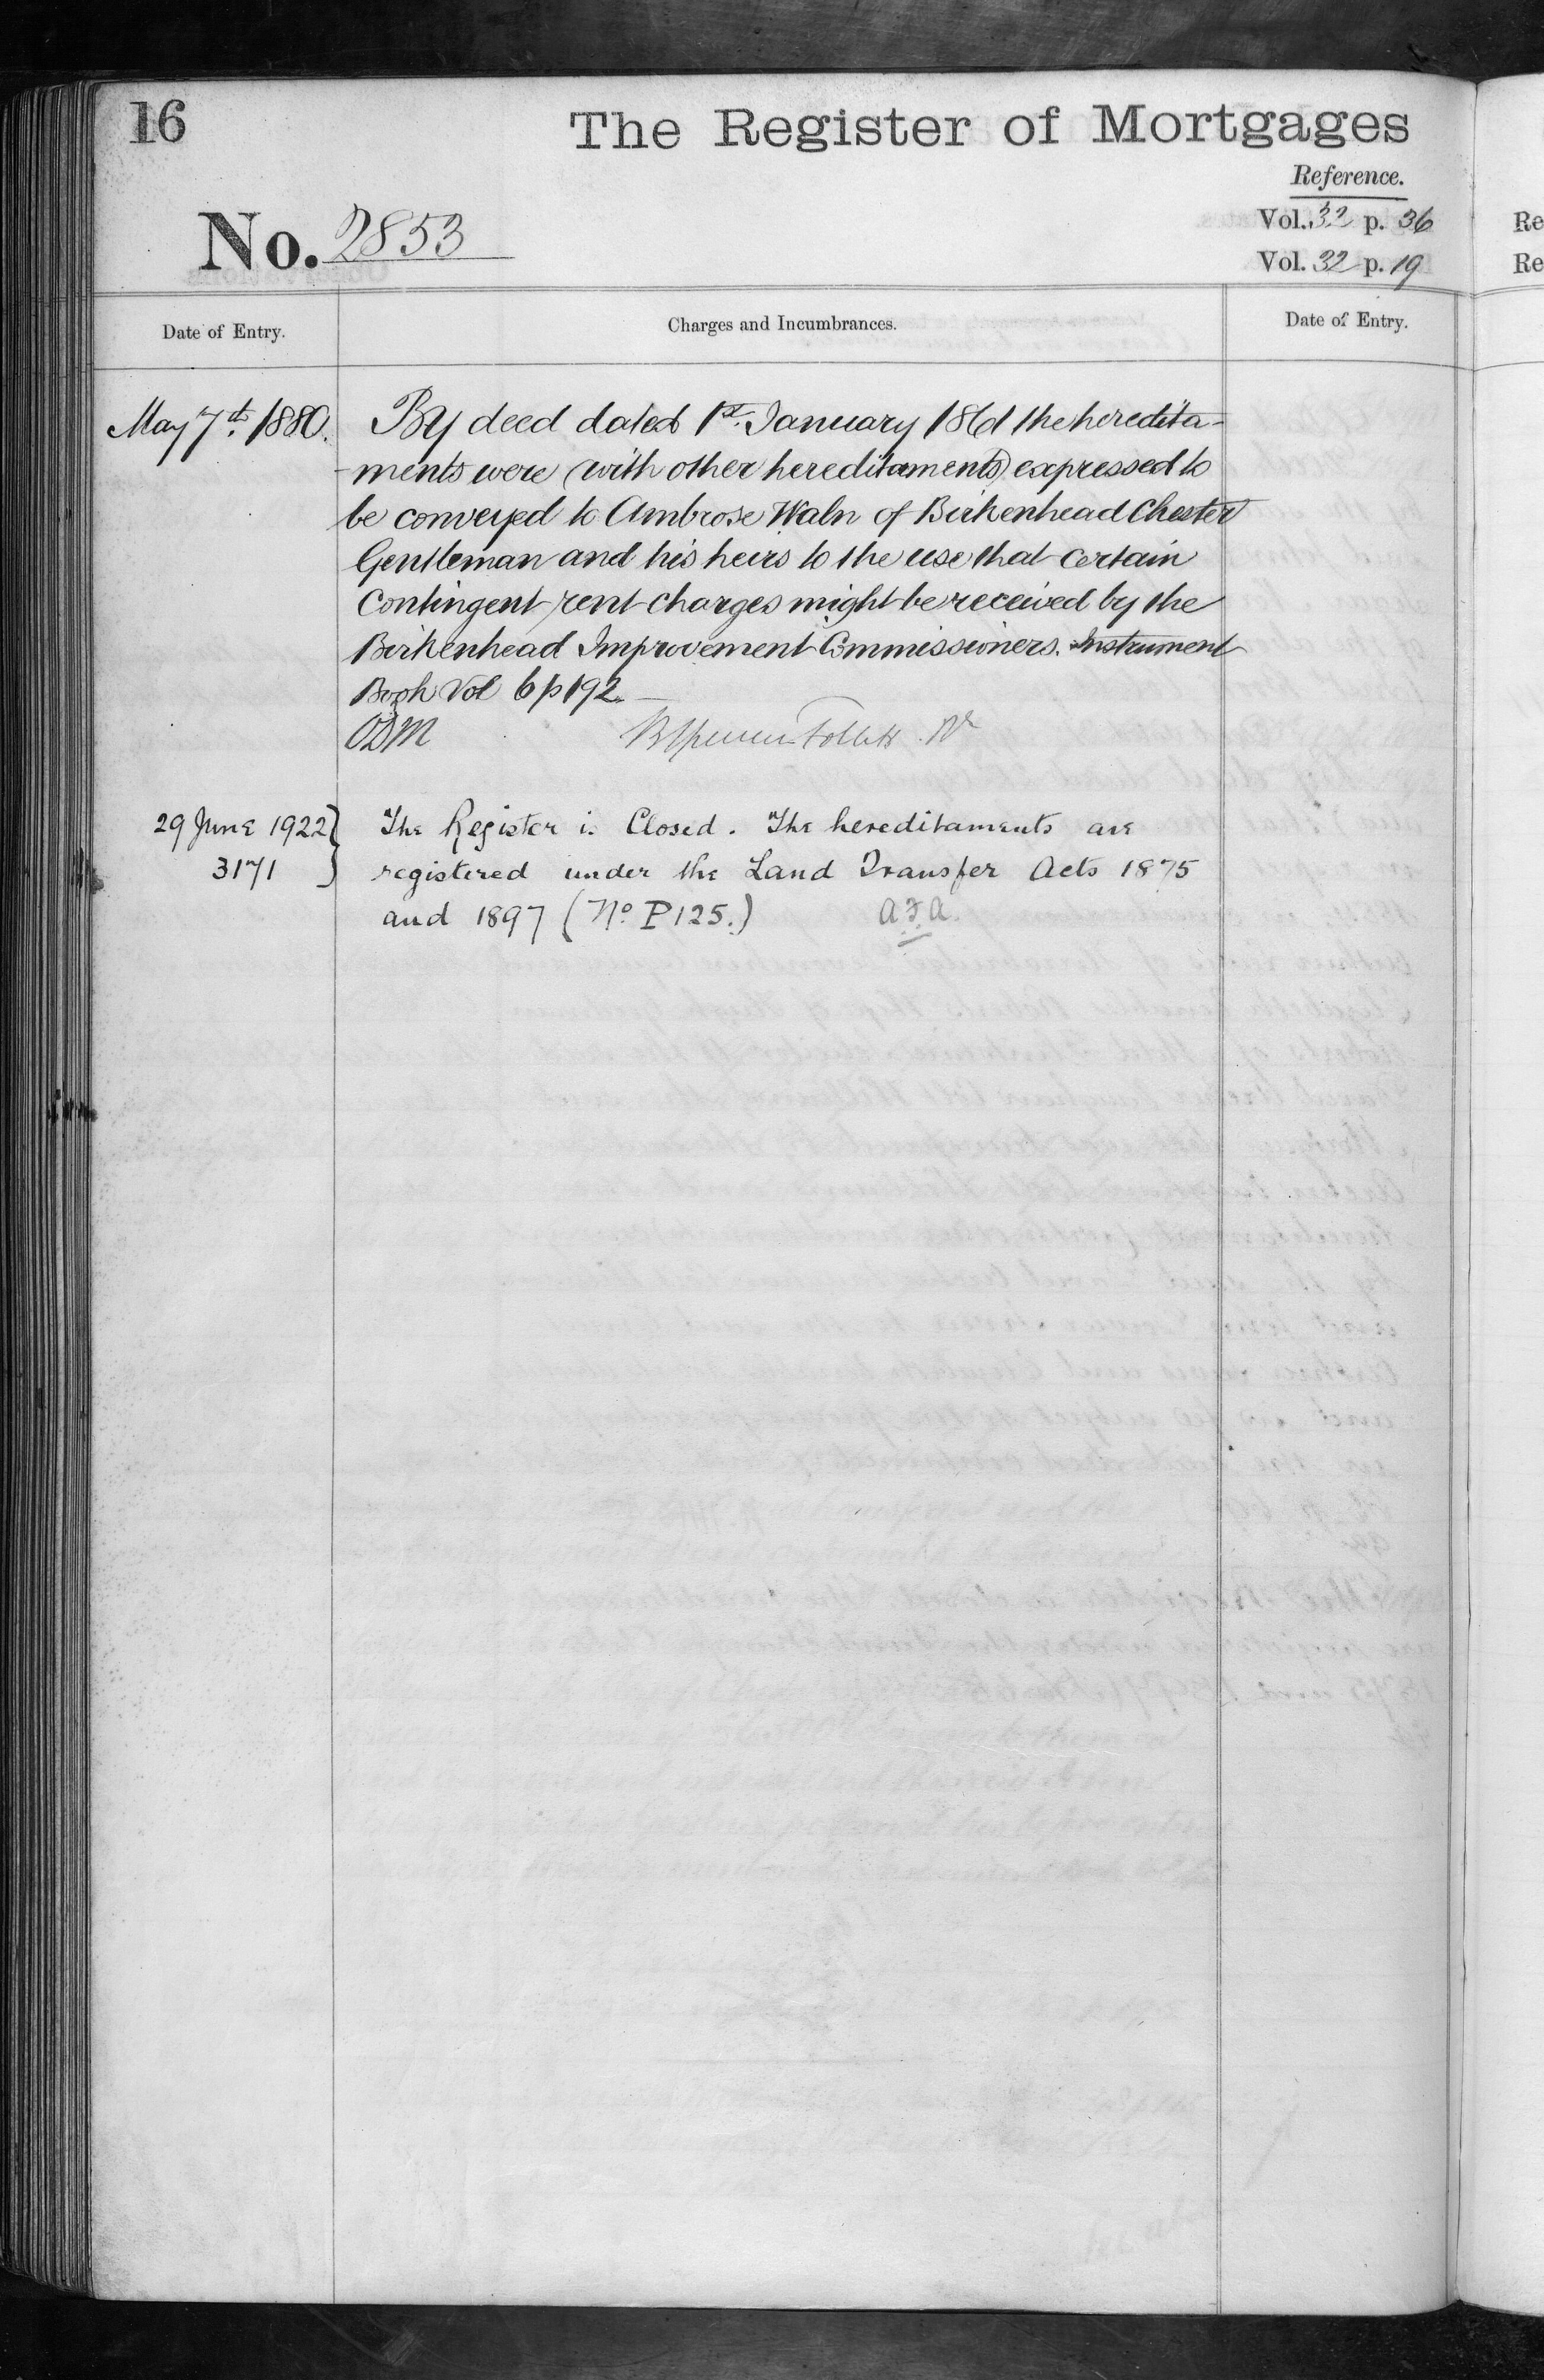 16
The Register of Mortgages
Reference.
No. 2853
Vol. 32 p. 36
Vol. 32 p. 19
Date of Entry.
Charges and Incumbrances.
Date of Entry.
May 7th 1880.
By deed dated 1st January 1861 the heredita-
-ments were (with other hereditaments) expressed to
be conveyed to Ambrose Waln of Birkenhead Chester
Gentleman and his heirs to the use that certain
Contingent rent charges might be received by the
Birkenhead Improvement Commissioners. Instrument
Book Vol 6 p 192
ODM
29 June 1922 }
3171
The Register is Closed. The hereditaments are
registered under the Land Transfer Acts 1875
and 1897 (No P125.) A.F.A.
Re
Re